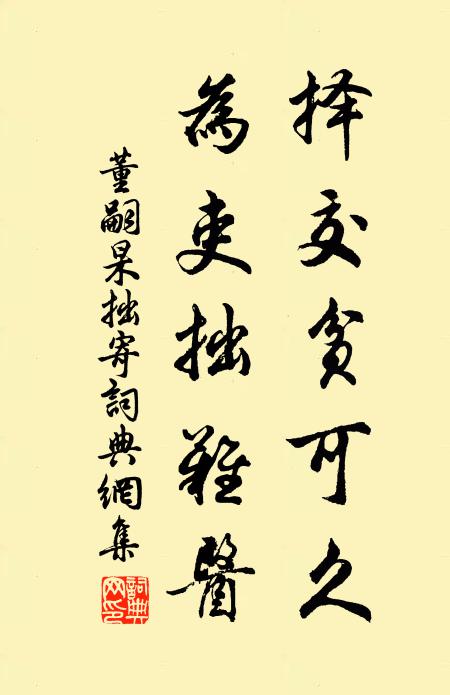 择交贫可久
為吏拙難醫
董嗣杲拙寄詞典網集
詞典网印